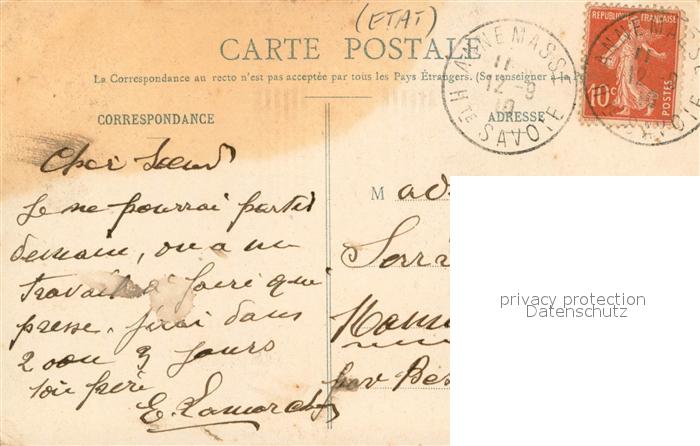 (ETAT)
CARTE POSTALE
La Correspondance au recto n'est pas acceptée par tous les Pays Étrangers. (Se renseigner à la Po
CORRESPONDANCE
ADRESSE
RÉPUBLIQUE FRANÇAISE
10c
POSTES
ANNEMASSE
11
12-9
10
HTE SAVOIE
Cher Soeur
Je ne pourrai partir
demain, on a un
travail à faire qui
presse. j'irai dans
2 ou 3 jours
ton frère
E.
M ad
Serr
par Bes
privacy protection
Datenschutz